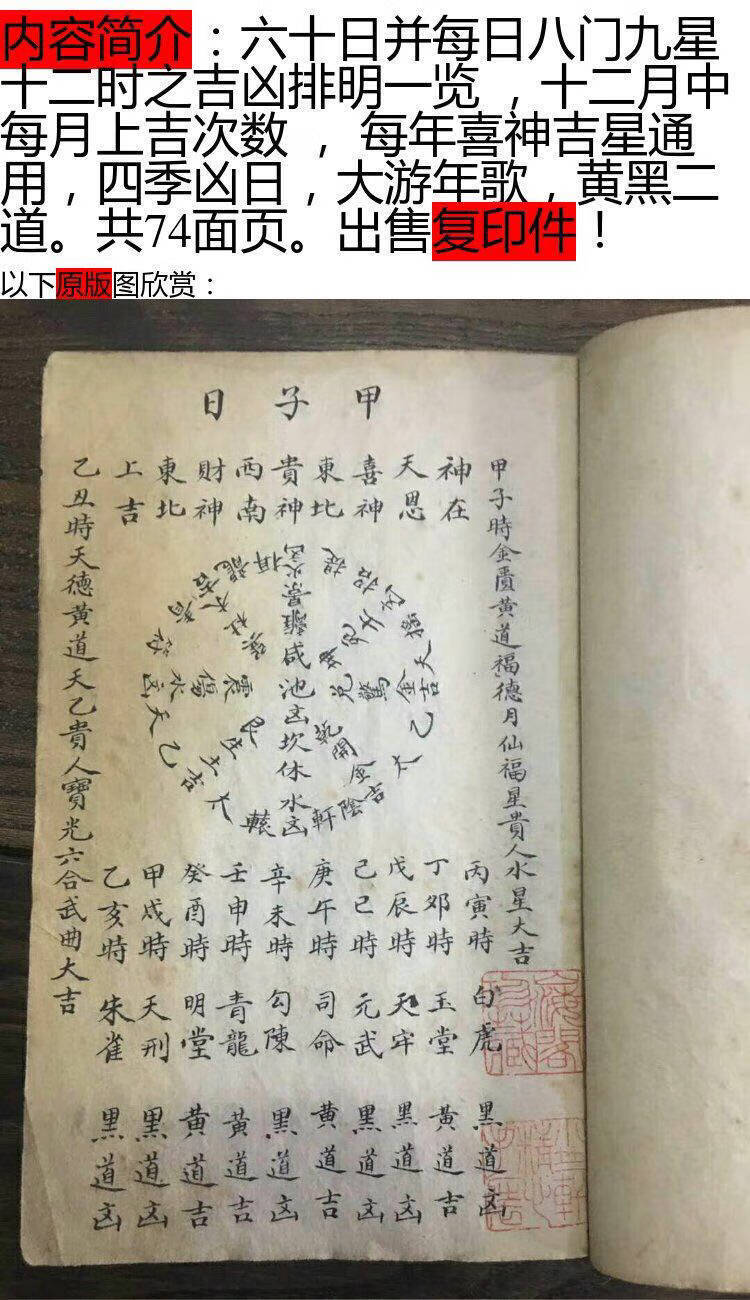 内容简介：六十日并每日八门九星
十二时之吉凶排明一览，十二月中
每月上吉次数，每年喜神吉星通
用，四季凶日，大游年歌，黄黑二
道。共74面页。出售复印件！
以下原版图欣赏：
甲子日
甲子時金匱黃道福德月仙福星貴人水星大吉
神在
天恩
喜神
東北
貴神
西南
財神
東北
上吉
離景火凶
咸池凶
坎休水凶
兌驚金吉
乾開金吉
艮生土吉
震傷水凶
軒轅
太陰
太乙
天乙
青龍
丙寅時白虎黑道凶
丁卯時玉堂黃道吉
戊辰時天牢黑道凶
己巳時元武黑道凶
庚午時司命黃道吉
辛未時勾陳黑道凶
壬申時青龍黃道吉
癸酉時明堂黃道吉
甲戌時天刑黑道凶
乙亥時朱雀黑道凶
乙丑時天德黃道天乙貴人寶光六合武曲大吉